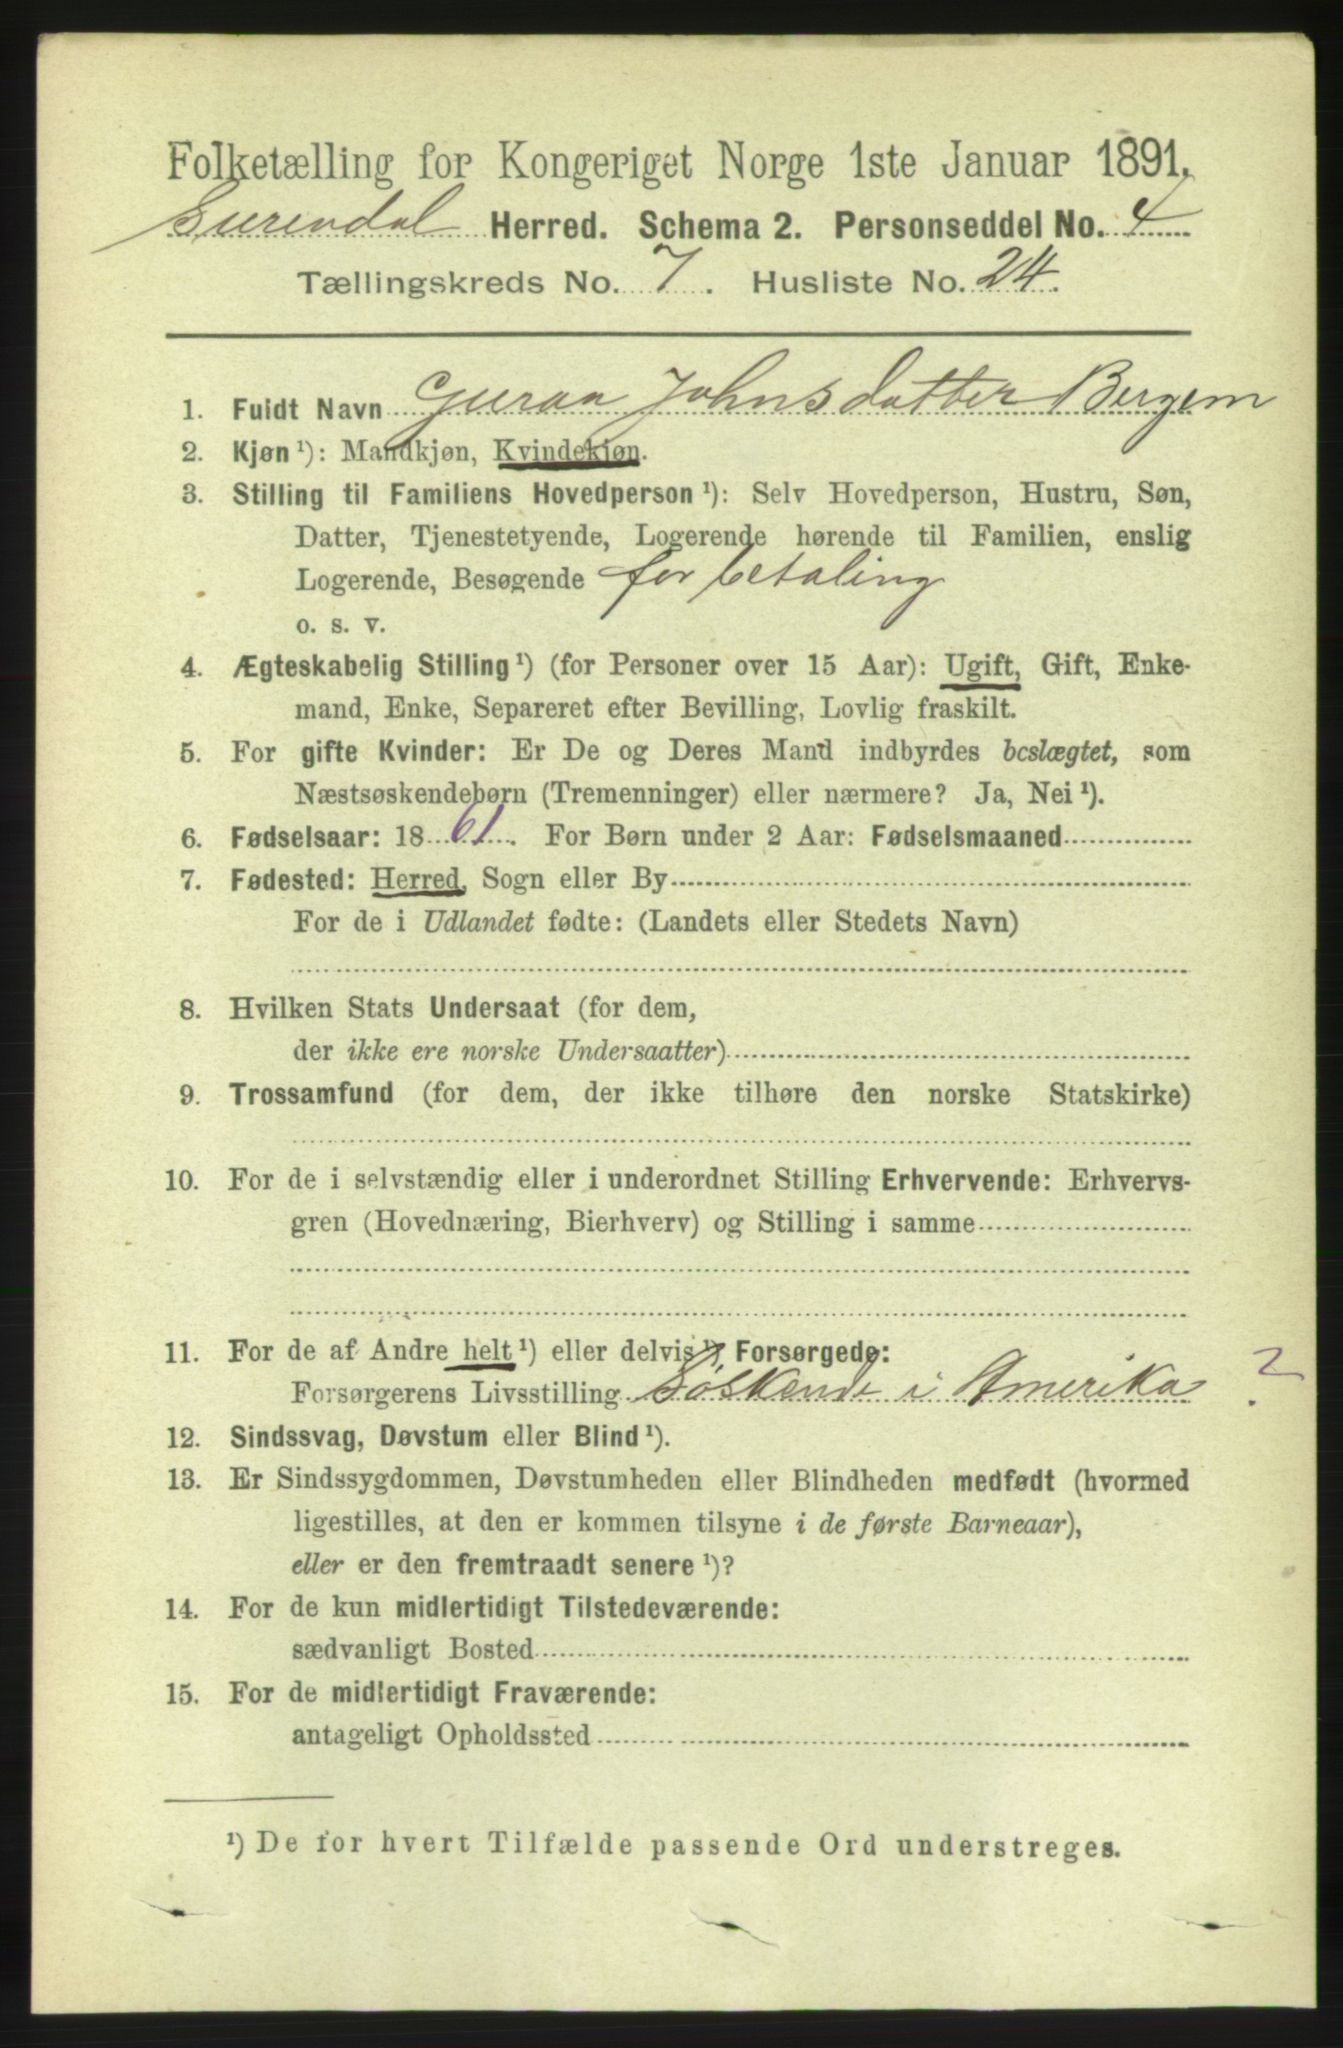 Folketælling for Kongeriget Norge 1ste Januar 1891.
Surendal Herred. Schema 2. Personseddel No. 4
Tællingskreds No. 7. Husliste No. 24.
1. Fuldt Navn Guraa Johnsdatter Bergem
2. Kjøn ¹): Mandkjøn, Kvindekjøn.
3. Stilling til Familiens Hovedperson ¹): Selv Hovedperson, Hustru, Søn,
Datter, Tjenestetyende, Logerende hørende til Familien, enslig
Logerende, Besøgende for betaling
o. s. v.
4. Ægteskabelig Stilling ¹) (for Personer over 15 Aar): Ugift, Gift, Enke-
mand, Enke, Separeret efter Bevilling, Lovlig fraskilt.
5. For gifte Kvinder: Er De og Deres Mand indbyrdes beslægtet, som
Næstsøskendebørn (Tremenninger) eller nærmere? Ja, Nei ¹).
6. Fødselsaar: 1861. For Børn under 2 Aar: Fødselsmaaned
7. Fødested: Herred, Sogn eller By
For de i Udlandet fødte: (Landets eller Stedets Navn)
8. Hvilken Stats Undersaat (for dem,
der ikke ere norske Undersaatter)
9. Trossamfund (for dem, der ikke tilhøre den norske Statskirke)
10. For de i selvstændig eller i underordnet Stilling Erhvervende: Erhvervs-
gren (Hovednæring, Bierhverv) og Stilling i samme
11. For de af Andre helt ¹) eller delvis ¹) Forsørgede:
Forsørgerens Livsstilling Søskende i Amerika ?
12. Sindssvag, Døvstum eller Blind ¹).
13. Er Sindssygdommen, Døvstumheden eller Blindheden medfødt (hvormed
ligestilles, at den er kommen tilsyne i de første Barneaar),
eller er den fremtraadt senere ¹)?
14. For de kun midlertidigt Tilstedeværende:
sædvanligt Bosted
15. For de midlertidigt Fraværende:
antageligt Opholdssted
¹) De for hvert Tilfælde passende Ord understreges.